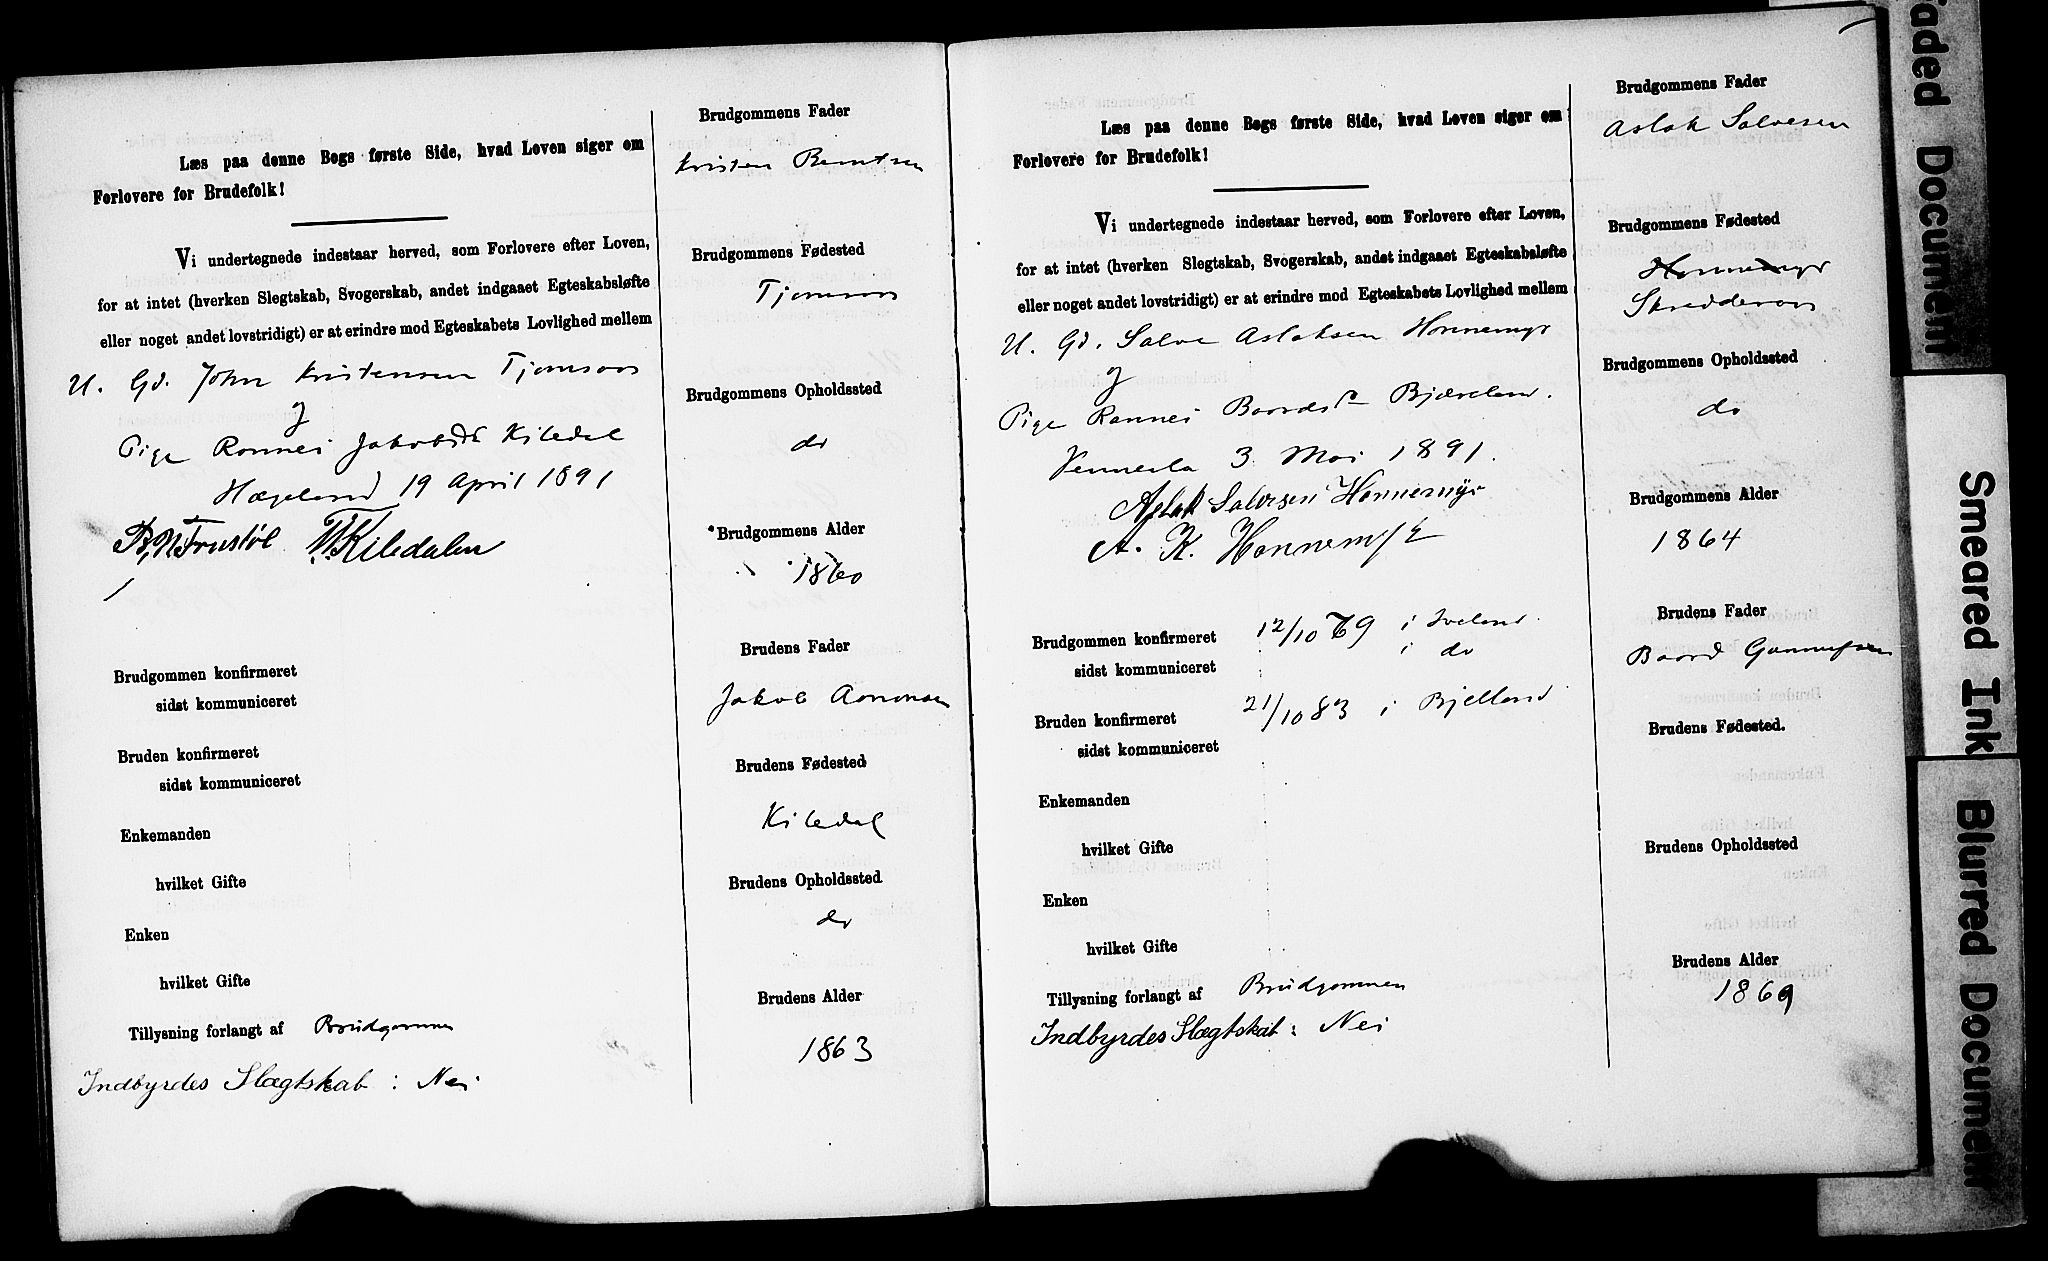 Læs paa denne Bogs første Side, hvad Loven siger om
Forlovere for Brudefolk!
Vi undertegnede indestaar herved, som Forlovere efter Loven,
for at intet (hverken Slegtskab, Svogerskab, andet indgaaet Egteskabsløfte
eller noget andet lovstridigt) er at erindre mod Egteskabets Lovlighed mellem
U. Gd. John Kristensen Tjomsaas
og
Pige Ronnei Jakobsd Kiledal
Hægeland 19 April 1891
Kiledalen
Brudgommen konfirmeret
sidst kommuniceret
Bruden konfirmeret
sidst kommuniceret
Enkemanden
hvilket Gifte
Enken
hvilket Gifte
Tillysning forlangt af Brudgommen
Indbyrdes Slægtskab : Nei
Brudgommens Fader
Kristen Berntsen
Brudgommens Fødested
Tjomsaas
Brudgommens Opholdssted
do
Brudgommens Alder
1860
Brudens Fader
Jakob Aanonsen
Brudens Fødested
Kiledal
Brudens Opholdssted
do
Brudens Alder
1863
Læs paa denne Bogs første Side, hvad Loven siger om
Forlovere for Brudefolk!
Vi undertegnede indestaar herved, som Forlovere efter Loven,
for at intet (hverken Slegtskab, Svogerskab, andet indgaaet Egteskabsløfte
eller noget andet lovstridigt) er at erindre mod Egteskabets Lovlighed mellem
U. Gd. Salve Aslaksen Honnemyr
og
Pige Ronnei Baardsd Bjæreland.
Vennesla 3 Mai 1891.
Aslak Salvesen Honnemyr
A. K. Honnemyr
Brudgommen konfirmeret 12/10 79 i Iveland
sidst kommuniceret i do
Bruden konfirmeret 21/10 83 i Bjelland
sidst kommuniceret
Enkemanden
hvilket Gifte
Enken
hvilket Gifte
Tillysning forlangt af Brudgommen
Indbyrdes Slægtskab : Nei
Brudgommens Fader
Aslak Salvesen
Brudgommens Fødested
Honnemyr
Skredderaas
Brudgommens Opholdssted
do
Brudgommens Alder
1864
Brudens Fader
Baard Gunnufsen
Brudens Fødested.
Brudens Opholdssted
Brudens Alder
1869
Faded Document
Smeared Ink
Blurred Document